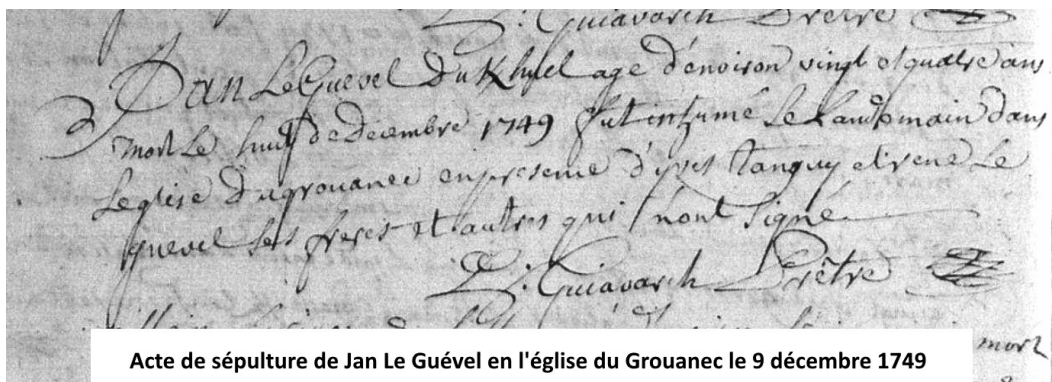 Guiavarch Prêtre
Jan Le Guevel Du Khuel agé d'envison vingt et quatre ans
mort Le huit de Decembre 1749 fut inhumé Le Landemain dans
Leglise du grouanec en presence d'yves Tanguy et rené Le
guevel ses freres et autres qui nont signé
Guiavarch Prêtre
mort
Acte de sépulture de Jan Le Guével en l'église du Grouanec le 9 décembre 1749